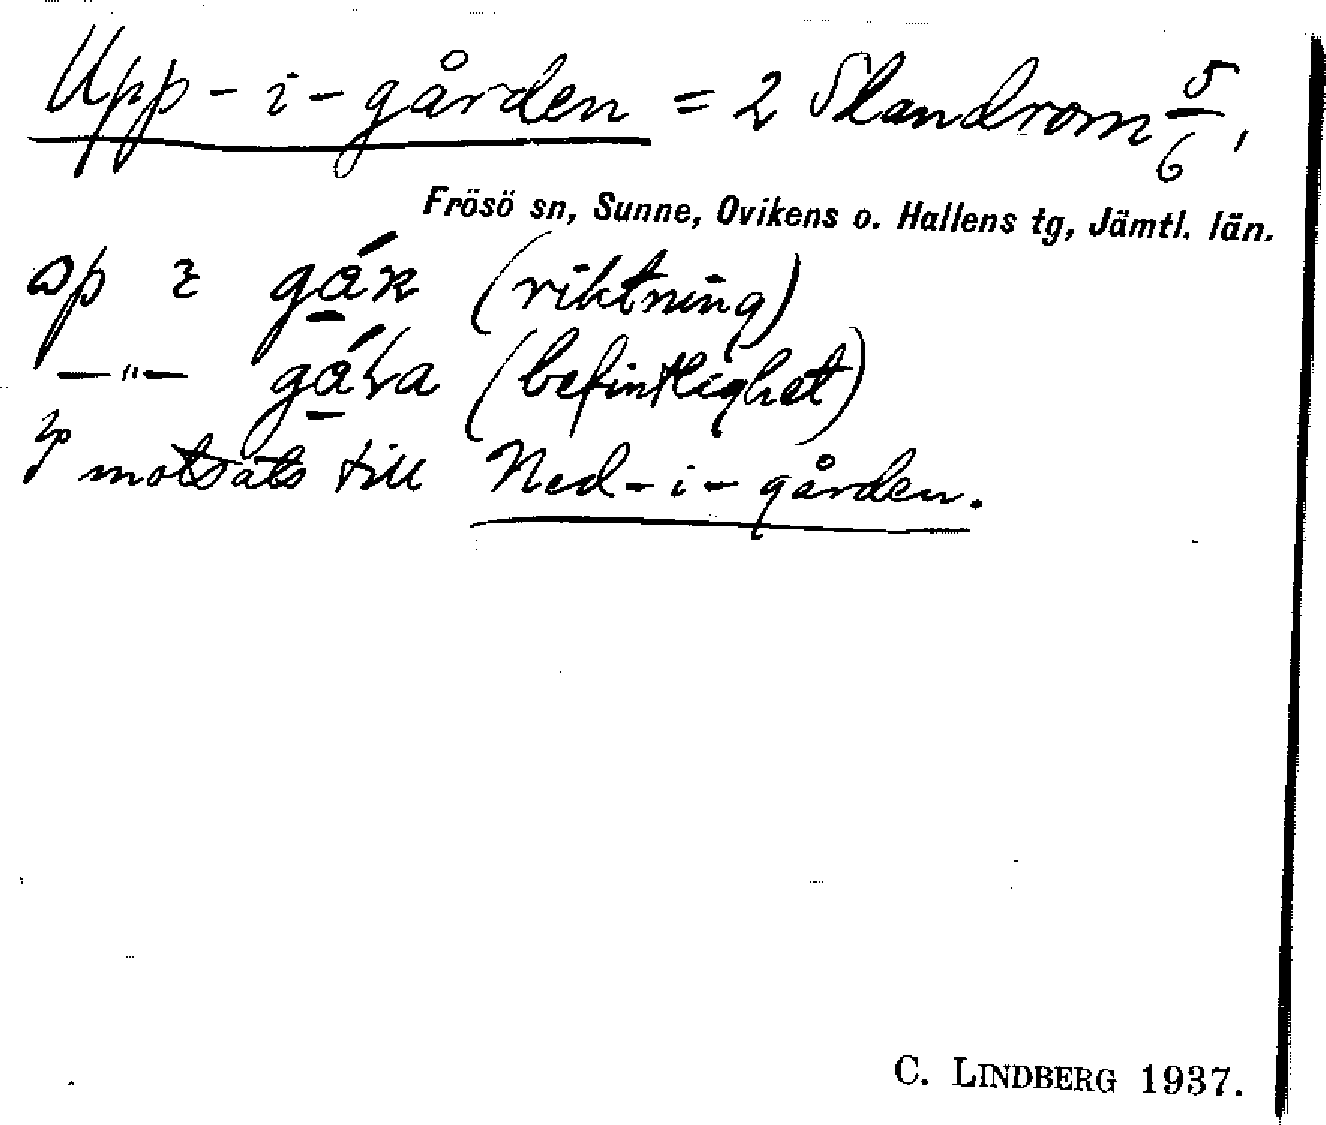 Upp-i-gården = 2 Slandrom 5/6,
Frösö sn, Sunne, Ovikens o. Hallens tg, Jämtl. län.
(riktning)
—"— (befintlighet)
motsats till Ned-i-gården.
C. LINDBERG 1937.